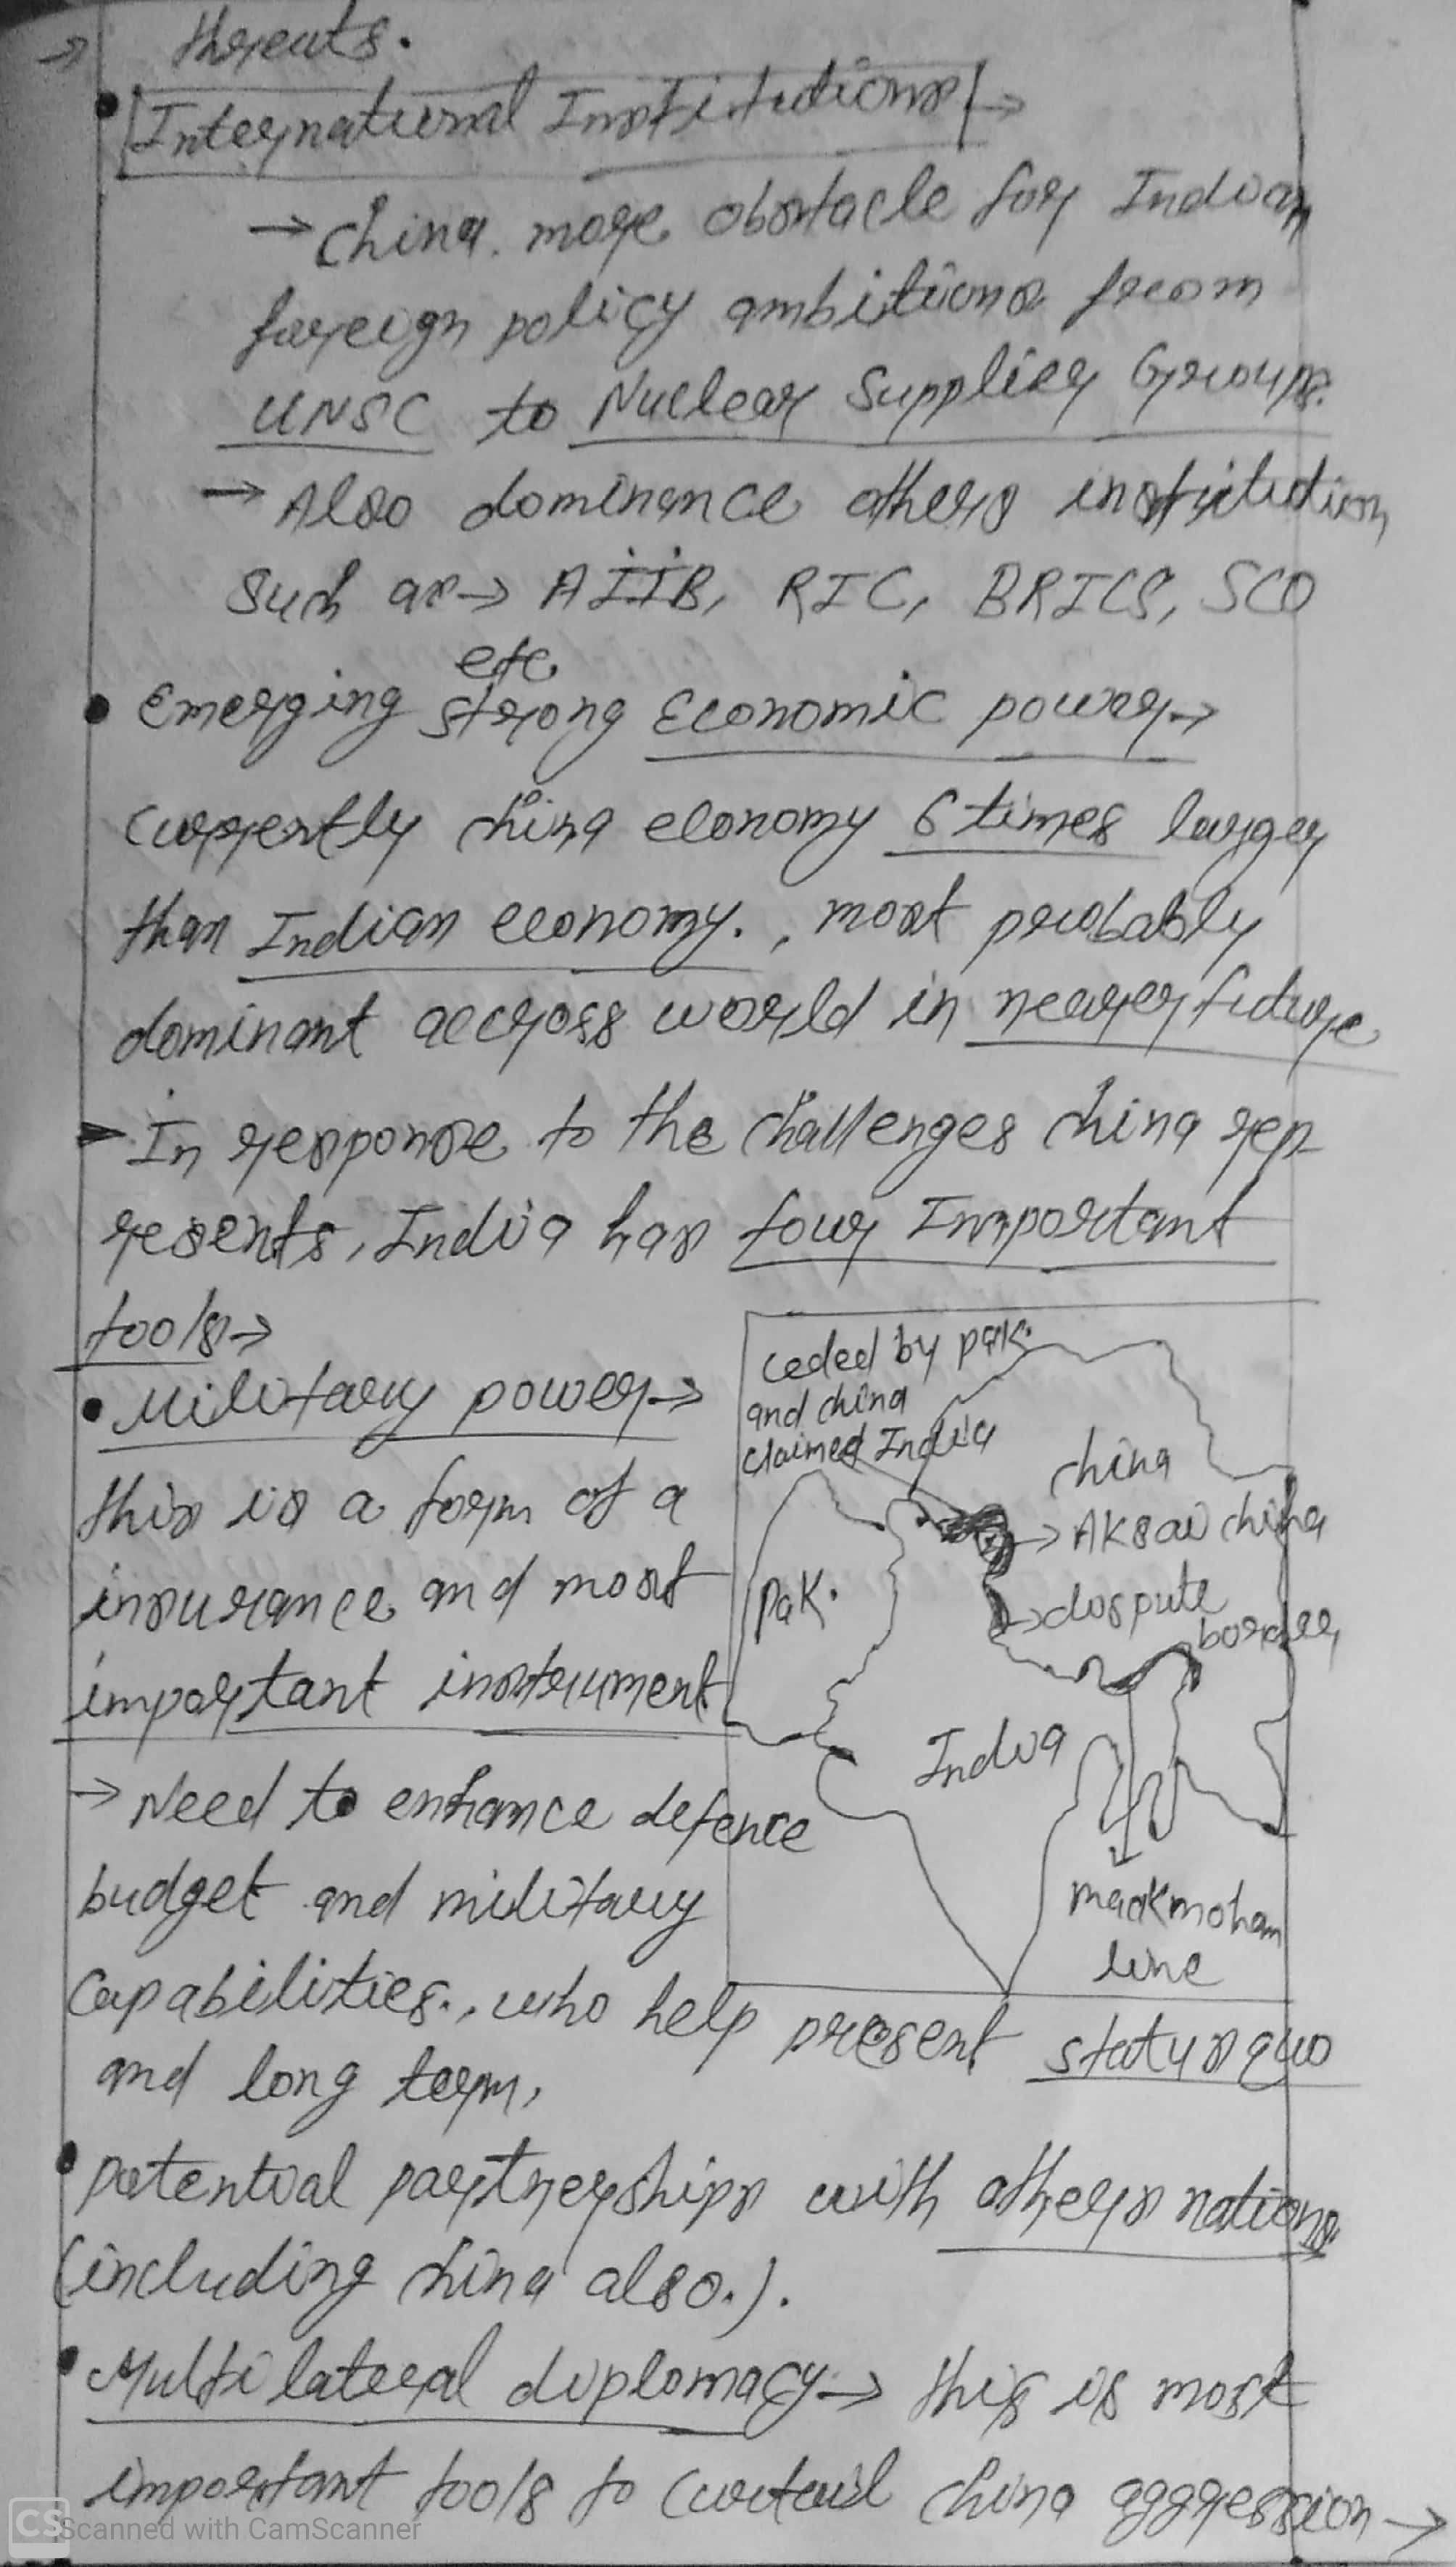 → threats.
• International Institutions →
→ China. more obstacle for Indian
foreign policy ambitions from
UNSC to Nuclear Supplier Groups.
→ Also dominance others institution,
Such as → AIIB, RIC, BRICS, SCO
etc
• Emerging strong Economic power →
Currently china economy 6 times larger
than Indian economy. , most probably
dominant accross world in nearer future
➤ In response to the challenges china rep-
resents, India has four Important
tools →
• Military power →
this is a form of a
insurance and most
important instrument
→ Need to enhance defence
budget and military
Capabilities., who help present status quo
and long term,
ceded by pak.
and china
claimed India
china
→ Aksai china
Pak.
→ dospute
border
India
mackmohan
line
• potential partnerships with others nations.
(including china also.).
• Multilateral diplomacy → this is most
important tools to curtail china aggression →
CS Scanned with CamScanner